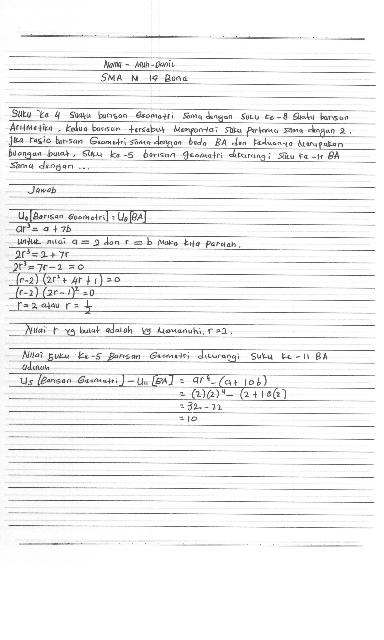 Nama - Muh. Danil
SMA N 19 Bone
Suku ke 4 Suatu barisan Geometri Sama dengan Suku ke-8 Suatu barisan
Aritmetika. Kedua barisan tersebut Mempunyai Suku Pertama sama dengan 2.
Jika rasio barisan Geometri Sama dengan beda BA dan keduanya Merupakan
bilangan bulat, Suku ke-5 barisan geometri dikurangi Suku ke-11 BA
Sama dengan ...
Jawab
[Barisan Geometri] = U8 [BA]
ar³ = a + 7b
Untuk nilai a = 2 dan r = b Maka kita Peroleh.
2r³ = 2 + 7r
2r³ = 7r - 2 = 0
(r-2) (2r² + 4r + 1) = 0
(r-2) (2r - 1)² = 0
r = 2 atau r = 1/2
Nilai r yg bulat adalah yg Memenuhi, r = 2.
Nilai Suku Ke-5 Barisan Geometri dikurangi Suku ke-11 BA
adalah
U5 [Barisan Geometri] - U11 [BA] = ar⁴ - (a + 10b)
= (2)(2)⁴ - (2 + 10(2)
= 32 - 22
= 10